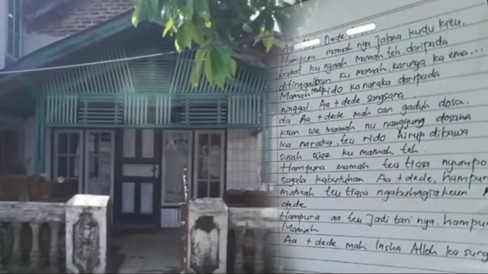 Aa Dede
Hampura mamah nya jalana kudu kieu,
ku mamah teh daripada
ditinggalkeun ku mamah, karunya ka ema...
Mamah rido ka naraka daripada
ninggal Aa + dede sangsara
da Aa + dede mah can gaduh dosa.
keun we mamah nu nanggung dosana
ka naraka, teu rido hirup dibawa
susah wae ku mamah teh.
Hampura mamah teu tiasa nyumponan
sagala kabutuhan Aa + dede, hampura
mamah teu tiasa ngabahagiakeun
dede
Hampura aa teu jadi tari nya, hampura
Mamah
Aa + dede mah Insha Alloh ka surga